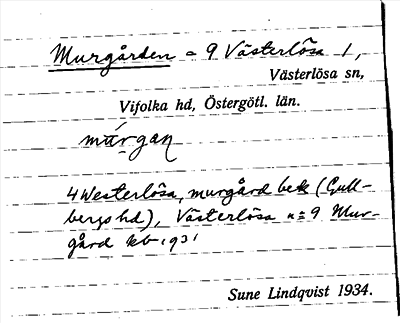 Murgården = 9 Västerlösa 1,
Västerlösa sn,
Vifolka hd, Östergötl. län.
múrgaɳ
4 Westerlösa, murgård bek (Gull-
bergs hd), Västerlösa n:o 9 Mur-
gård kb 1931
Sune Lindqvist 1934.